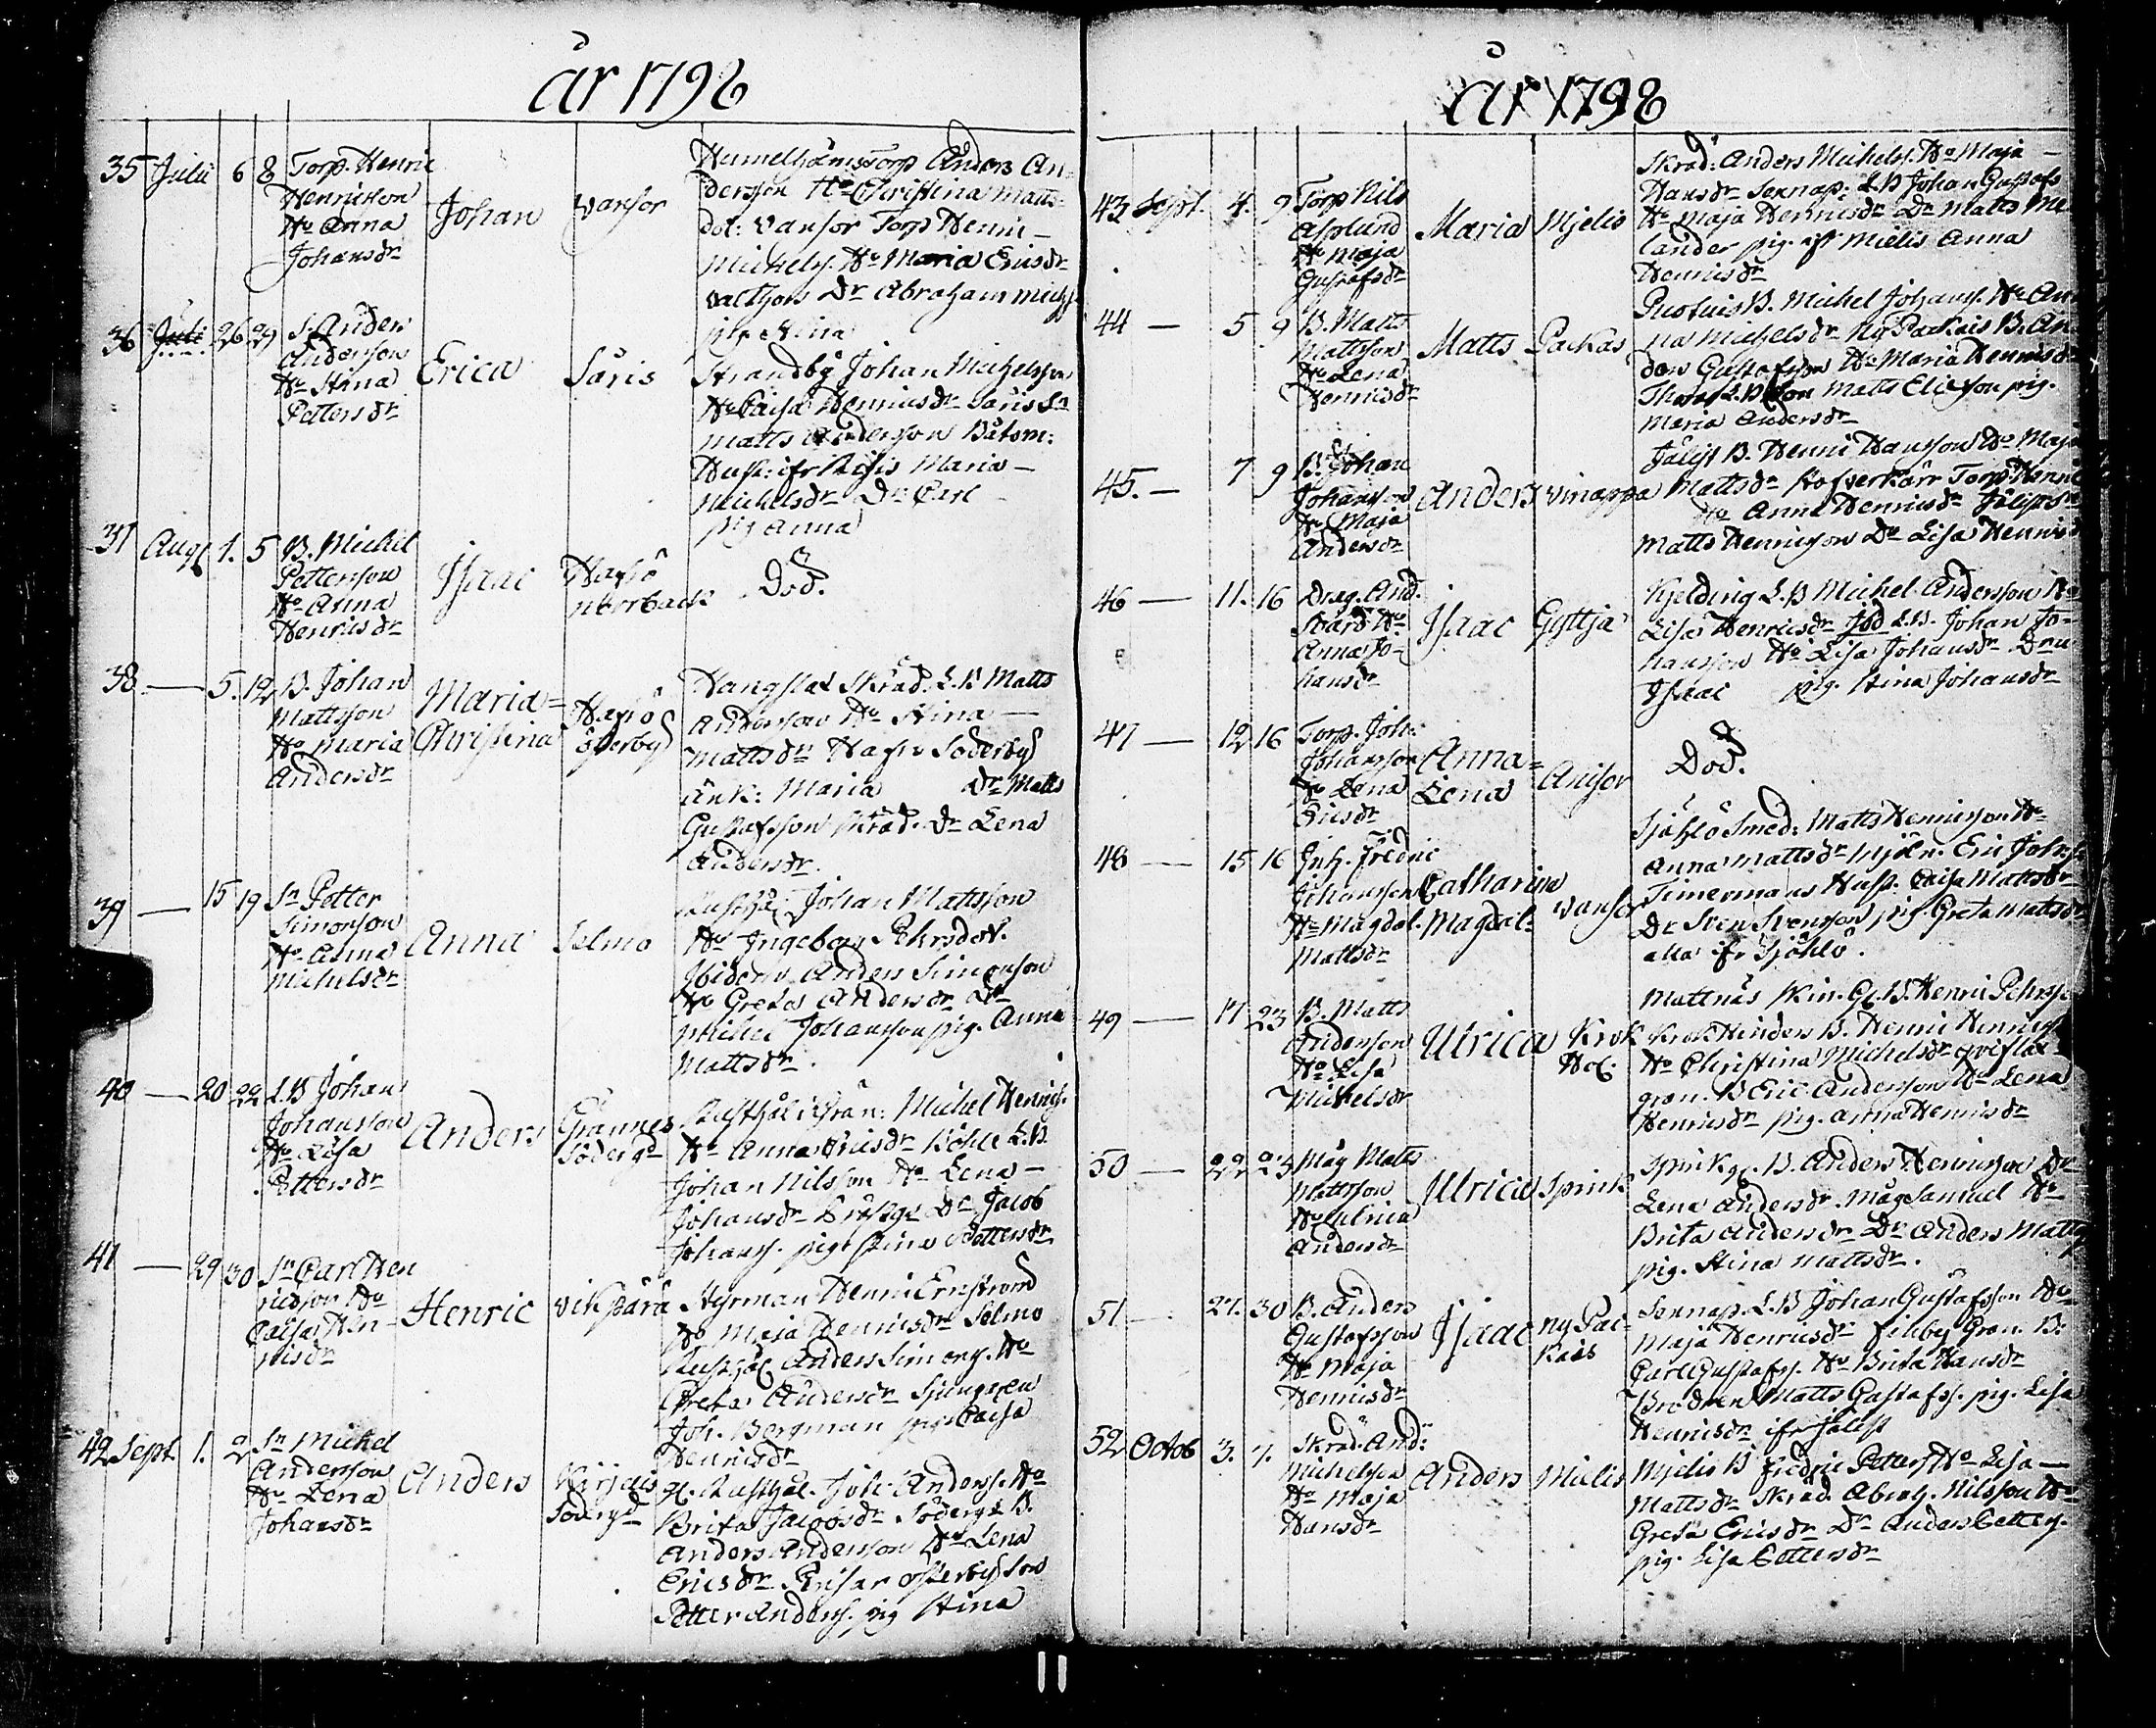 år 1798
35 Julii 6 8 Torp. Henric
Henricsson
Ho Anna
Johansdr
Johan
Vansor
Humelholms Torp Anders An-
dersson Ho Christina Matts-
dot: Vansor Torp Henric
Michelss. Ho Maria Ericsdr
Dr Abraham
Stina
36 Juli 26 29 S. Anders
Andersson
Ho Stina
Pettersdr
Erica
Säris
Strandby Johan Michelsson
Ho Caisa Henricsdr Säris Sn
Matts Andersson Båtsm:
Hust: ifr Maria
Michelsdr Dr Carl
pig Anna
37 Aug 1. 5 B. Michel
Pettersson
Ho Anna
Henricsdr
Isaac
Hafsö
Död.
38 — 5. 12 B. Johan
Mattsson
Ho Maria
Andersdr
Maria-
Christina
Hafsö
österby
Hangslax Skräd. L.B Matts
Andersson Ho Stina
Mattsdr Hafsö Söderby
änk: Maria Dr Matts
Gustafsson Skräd. Dr Lena
Andersdr.
39 — 15 19 Sn Petter
Simonsson
Ho Anna
Michelsdr
Anna
Selmo
Rusthål: Johan Mattsson
Ho Ingeborg Pehrsdot.
Ibidem Anders Simonsson
Ho Greta Andersdr Dr
Michel Johansson pig. Anna
Mattsdr.
40 — 20 22 L.B Johan
Johansson
Ho Lisa
Pettersdr
Anders
Grännes
Söderg
Rusthål i Grän: Michel Henrichs.
Ho Anna Ericsdr Böhle L.B
Johan Nilsson Ho Lena
Johansdr Dr Jacob
Johanss. pig Stina Pettersdr
41 — 29 30 Sn Carl Hen
ricsson Ho
Caisa Hen-
ricsdr
Henric
Vikpärä
Styrman Henric Ernström
Ho Maja Henricsdr Selmo
Rusthål Anders Simons. Ho
Greta Andersdr Ljunggren
Joh. Bergman pig Caisa
Henricsdr
42 Sept. 1. 2 Sn Michel
Andersson
Ho Lena
Johansdr
Anders
Kirjais
Söderg
gl. Rusthål. Joh: Anderss. Ho
Brita Jacobsdr Söderg B.
Anders Andersson Ho Lena
Ericsdr Pensar österby Son
Petter Anderss. pig Stina
år 1798
43 Sept. 4. 9 Torp Nils
Asplund
Ho Maja
Gustafsdr
Maria
Mjelis
Skräd: Anders Michelss. Ho Maja
Hansdr Sexnap: L.B Johan Gustafs
Ho Maja Henricsdr Dr Matts Me
lander pig. ifr Mielis Anna
Henricsdr
44 — 5 9 B. Matts
Mattsson
Ho Lena
Henricsdr
Matts
Packas
B. Michel Johanss. Ho An
na Michelsdr Ny Packais B. An
ders Gustafsson Ho Maria Henricsdr
L.B Son Matts Elisson pig.
Maria Andersdr
45. — 7 9 B. Johan
Johansson
Ho Maja
Andersdr
Anders
Vinappa
Fälist B. Henric Hansson Ho Maja
Mattsdr Torp Henric
Ho Anna Henricsdr Fälist Dr
Matts Henricsson Dr Lisa Henrics
46 — 11. 16 Drag. And.
Svärd Ho
Anna Jo-
hansdr
Isaac
Gyttja
Kjelding L.B Michel Andersson Ho
Lisa Henricsdr L.B. Johan Jo-
hansson Ho Lisa Johansdr
Isaac pig. Stina Johansdr
47 — 12 16 Torp. Joh:
Johansson
Ho Lena
Ericsdr
Anna-
Lena
Anisor
Död.
48 — 15 16 Inh. Fredric
Johansson
Ho Magdal.
Mattsdr
Catharina
Magdal:
Vansor
Sjöhlö Smed: Matts Henricsson Ho
Anna Mattsdr Mjöln. Eric Johans
Timermans Hust. Caisa Mattsdr
Dr Sven Svensson pig. Greta Mattsdr
alla ifr Sjöhlö.
49 — 17 23 B. Matts
Andersson
Ho Lisa
Michelsdr
Ulrica
Krok
Mattnäs Gl. B. Henric Pehrss
Krok B. Henric Henricss
Ho Christina Michelsdr
B Eric Andersson Ho Lena
Henricsdr pig. Anna Henricsdr
50 — 22 23 Måg Matts
Mattsson
Ho Ulrica
Andersdr
Ulrica
Spink
Spink gl. B. Anders Henricsson Dr
Lena Andersdr. Måg Samuel Ho
Brita Andersdr Dr Anders Matts
pig. Stina Mattsdr.
51 — 27. 30 B. Anders
Gustafsson
Ho Maja
Henricsdr
Isaac
Ny Pac-
kais
Sexnap. L.B Johan Gustafsson Ho
Maja Henricsdr Finby Gran. B:
Carl Gustafss. Ho Brita Hansdr
Brodren Matts Gustafss. pig. Lisa
Henricsdr ifr Fälist
52 Octob 3. 7. Skräd. And:
Michelsson
Ho Maja
Hansdr
Anders
Mielis
Mjelis B Fredric Petters Ho Lisa
Mattsdr Skräd. Abrah. Nilsson Ho
Greta Ericsdr Dr Anders Petterss.
pig. Lisa Pettersdr